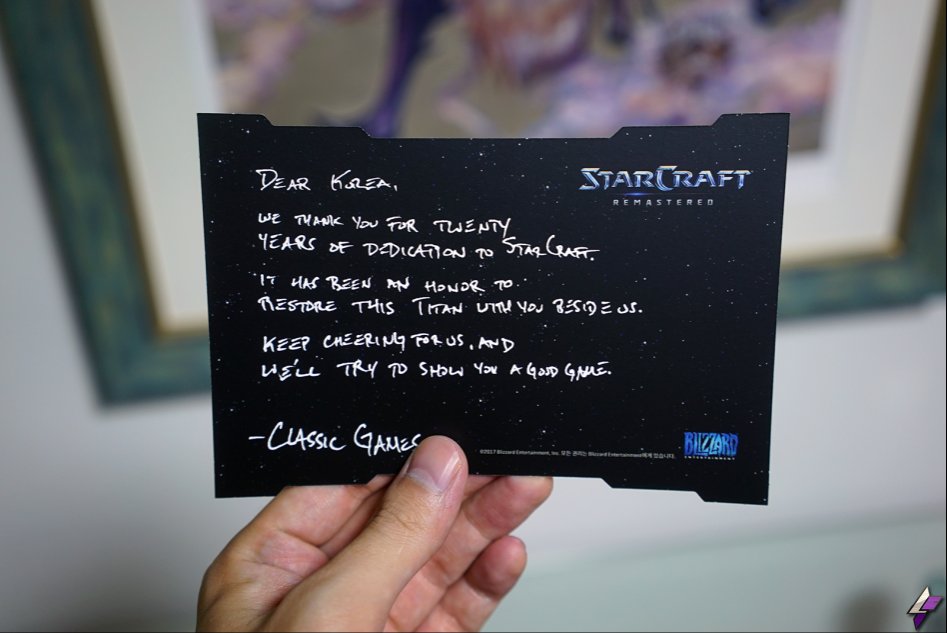 DEAR KOREA,
STARCRAFT
REMASTERED
WE THANK YOU FOR TWENTY
YEARS OF DEDICATION TO STARCRAFT.
IT HAS BEEN AN HONOR TO
RESTORE THIS TITAN WITH YOU BESIDE US.
KEEP CHEERING FOR US, AND
WE'LL TRY TO SHOW YOU A GOOD GAME.
-CLASSIC GAMES
©2017 Blizzard Entertainment, Inc. 모든 권리는 Blizzard Entertainment에게 있습니다.
BLIZZARD
ENTERTAINMENT